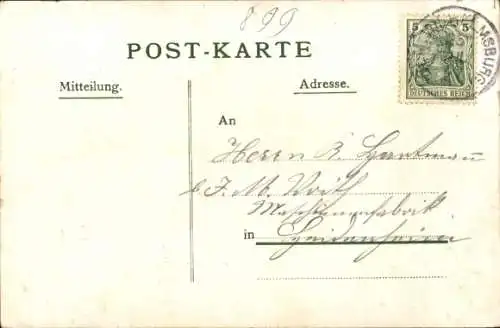 899
POST-KARTE
5 5
DEUTSCHES REICH
MSBURG
Mitteilung.
Adresse.
An
Herrn R. Hartmann
b/ J. M. Voith
Maschinenfabrik
in Heidenheim